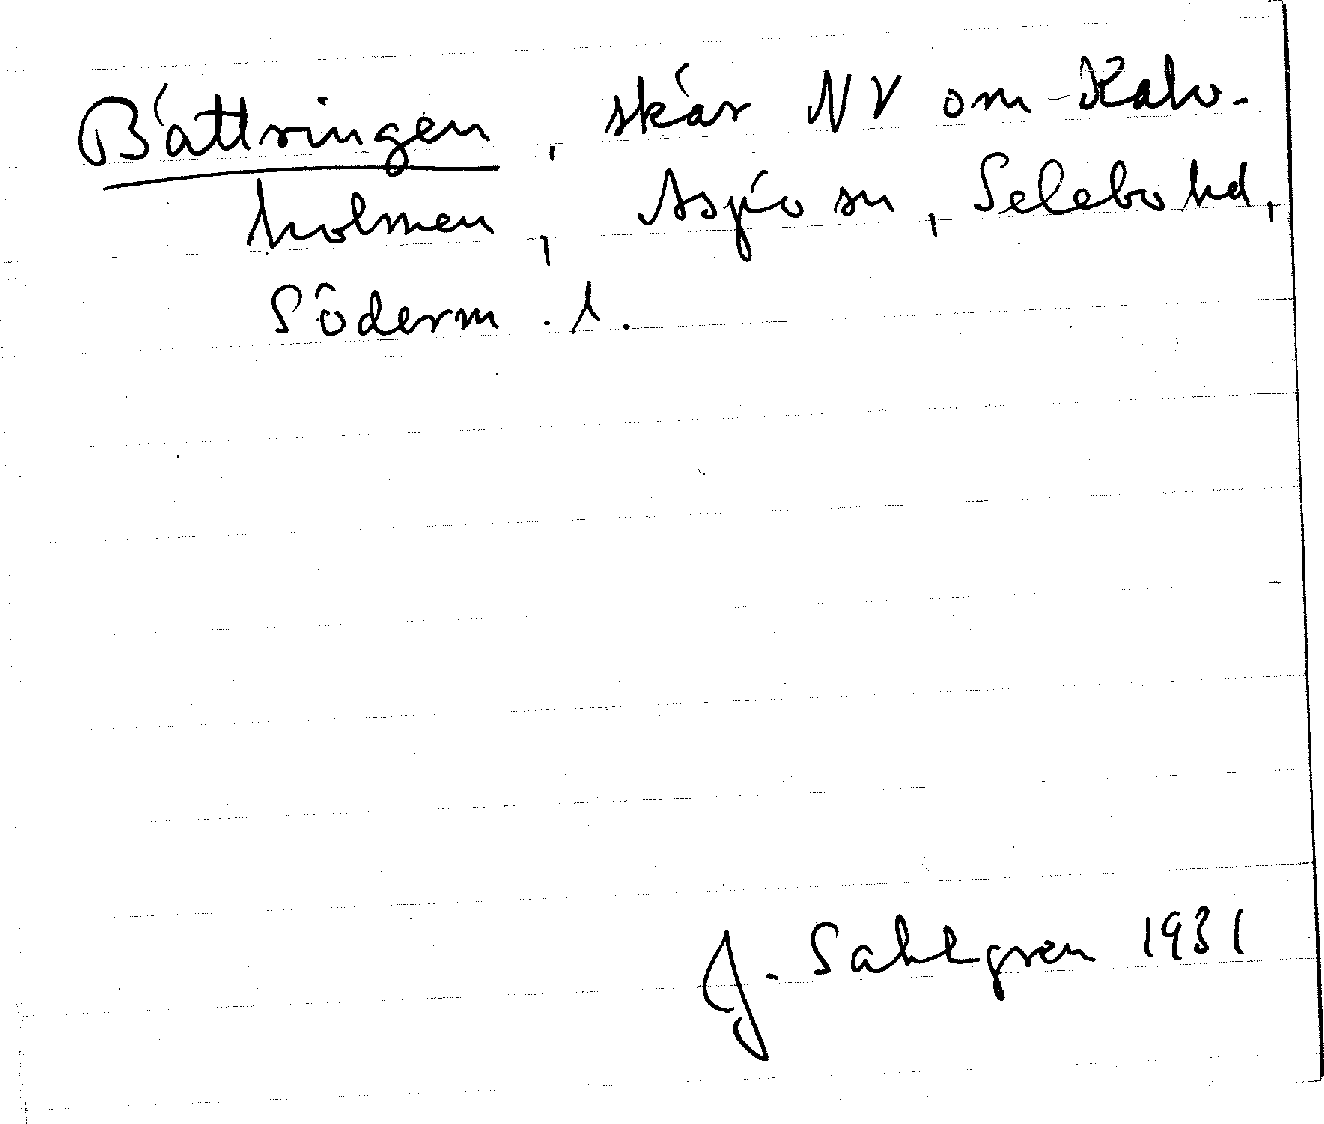 Bättringen, skär NV om Kalv-
holmen, Aspö sn, Selebo hd,
Söderm. l.
J. Sahlgren 1931